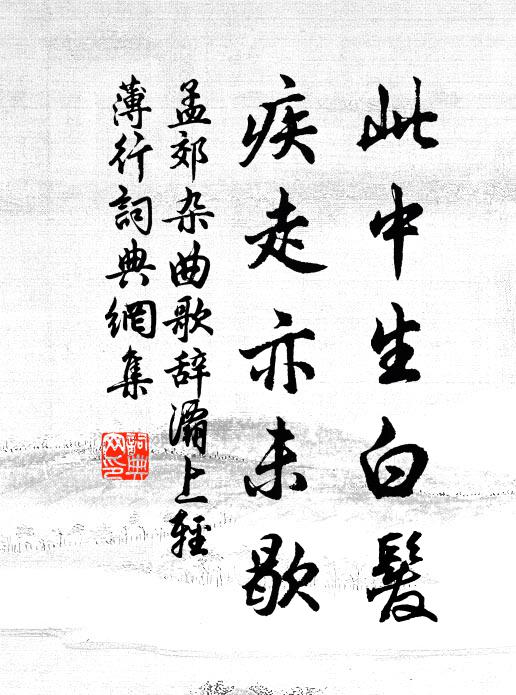 此中生白髮
疾走亦未歇
孟郊杂曲歌辞灞上輕
薄行詞典網集
詞典
网印